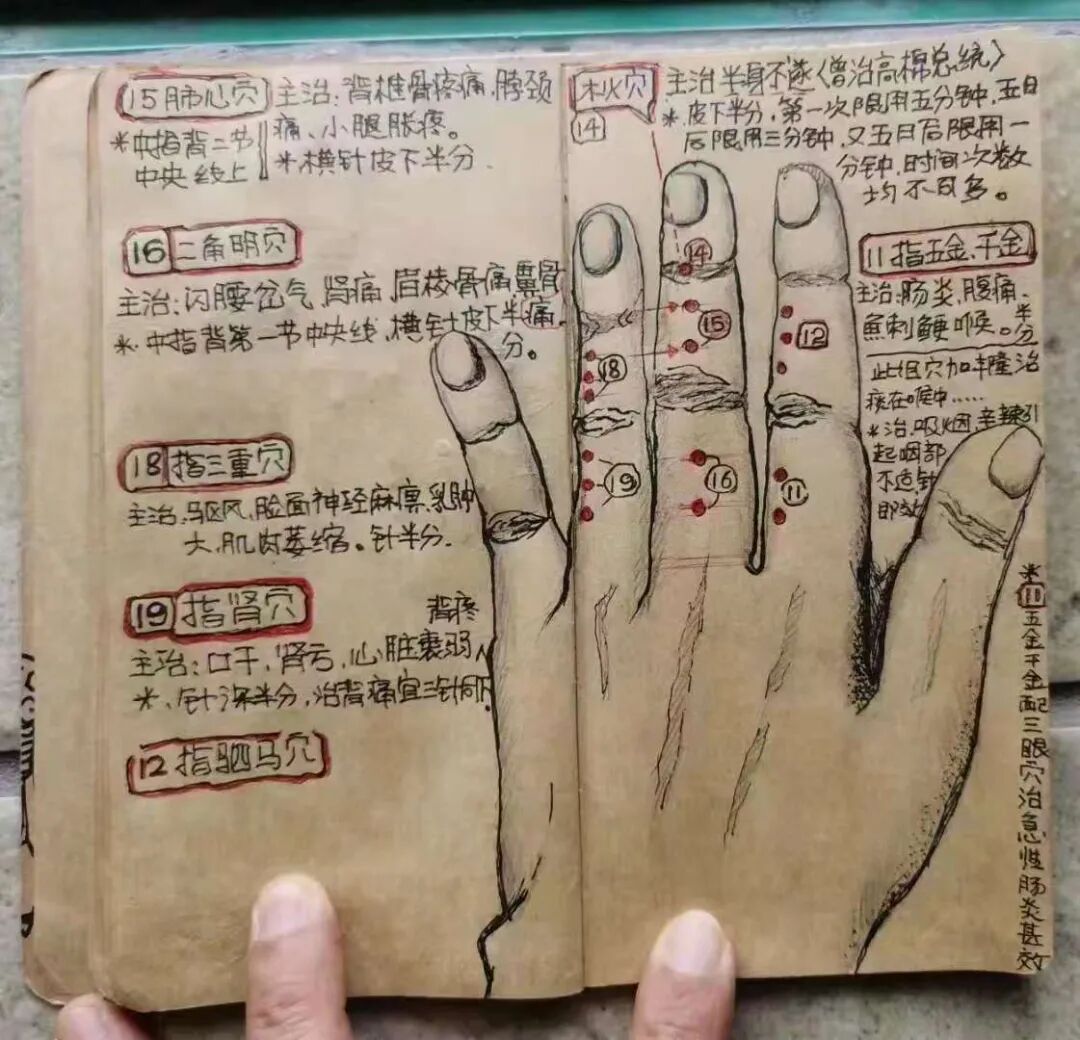 15 肺心穴
主治：背椎骨疼痛，脖颈
痛、小腿胀疼。
*中指背二节
中央线上
*横针皮下半分.
16 二角明穴
主治：闪腰岔气，肾痛，眉棱骨痛鼻骨
痛
*.中指背第一节中央线，横针皮下半
分。
18 指三重穴
主治：驱风，脸面神经麻痹，乳肿
大，肌肉萎缩。针半分.
19 指肾穴
背疼
主治：口干，肾亏，心脏衰弱
*.针深半分，治背痛宜三针同下
12 指驷马穴
木火穴
14
主治半身不遂〈曾治高棉总统〉
*.皮下半分，第一次限用五分钟，五日
后限用三分钟，又五日后限用一
分钟，时间次数
均不可多。
11 指五金、千金
主治：肠炎，腹痛、
鱼刺鲠喉。半分
此组穴加丰隆治
痰在喉中……
*治，吸烟辛辣引
起咽部
不适，针
14
15
12
18
19
16
11
*11五金千金配三眼穴治急性肠炎甚效